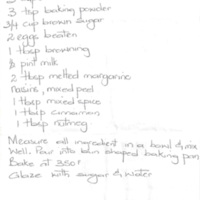 3 tsp baking powder
3/4 cup brown sugar
2 eggs beaten
1 tbsp browning
½ pint milk
2 tbsp melted margarine
Raisins, mixed peel
1 tbsp mixed spice
1 tbsp cinnamon
1 tbsp nutmeg
Measure all ingredient in a bowl & mix
Well. Pour into bun shaped baking pan
Bake at 350F
Glaze with suggar & water